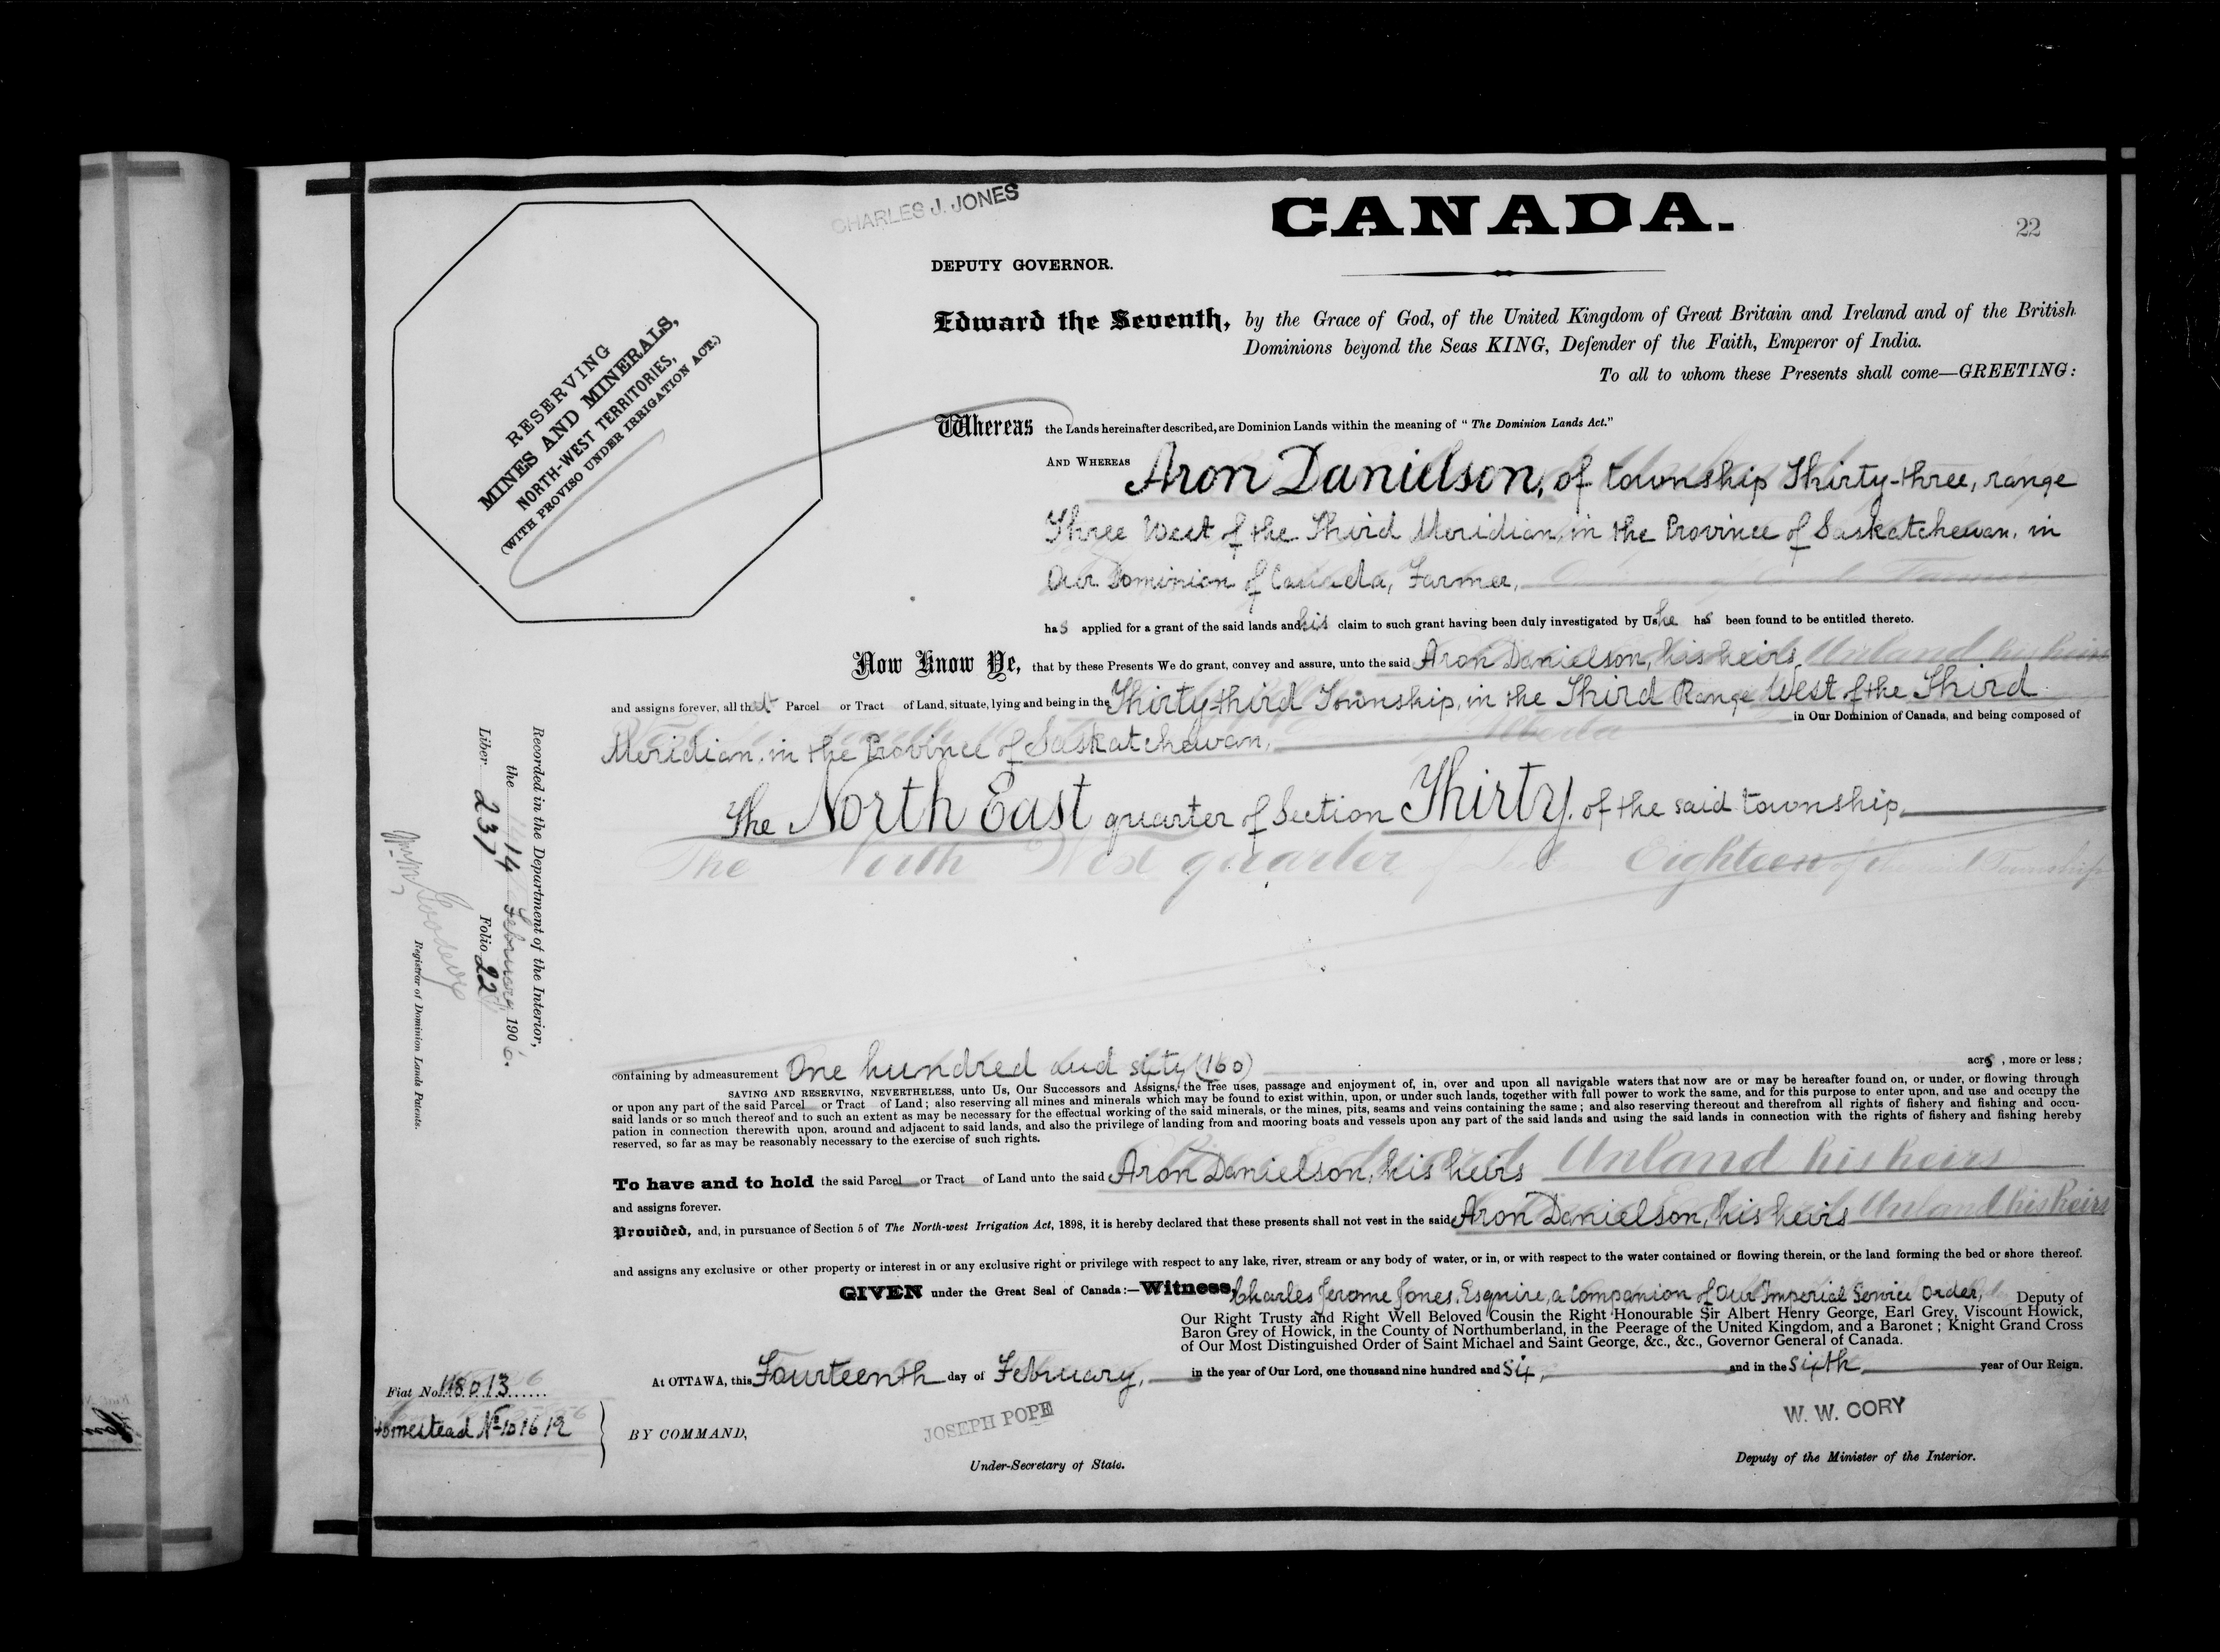 CHARLES J. JONES
CANADA.
22
DEPUTY GOVERNOR.
RESERVING
MINES AND MINERALS,
NORTH-WEST TERRITORIES,
(WITH PROVISO UNDER IRRIGATION ACT.)
Edward the Seventh, by the Grace of God, of the United Kingdom of Great Britain and Ireland and of the British
Dominions beyond the Seas KING, Defender of the Faith, Emperor of India.
To all to whom these Presents shall come—GREETING:
Whereas the Lands hereinafter described, are Dominion Lands within the meaning of "The Dominion Lands Act."
AND WHEREAS Aron Danielson, of township Thirty-three, range
Three West of the Third Meridian, in the Province of Saskatchewan, in
Our Dominion of Canada, Farmer,
has applied for a grant of the said lands and his claim to such grant having been duly investigated by Us he has been found to be entitled thereto.
Now Know Ye, that by these Presents We do grant, convey and assure, unto the said Aron Danielson, his heirs Unland his heirs
and assigns forever, all that Parcel or Tract of Land, situate, lying and being in the Thirty-third Township, in the Third Range West of the Third
in Our Dominion of Canada, and being composed of
Meridian, in the Province of Saskatchewan, Alberta
The North East quarter of Section Thirty, of the said township,
The North West quarter of Section Eighteen of the said Township
containing by admeasurement One hundred and sixty (160) acres, more or less;
SAVING AND RESERVING, NEVERTHELESS, unto Us, Our Successors and Assigns, the free uses, passage and enjoyment of, in, over and upon all navigable waters that now are or may be hereafter found on, or under, or flowing through
or upon any part of the said Parcel or Tract of Land; also reserving all mines and minerals which may be found to exist within, upon, or under such lands, together with full power to work the same, and for this purpose to enter upon, and use and occupy the
said lands or so much thereof and to such an extent as may be necessary for the effectual working of the said minerals, or the mines, pits, seams and veins containing the same; and also reserving thereout and therefrom all rights of fishery and fishing and occu-
pation in connection therewith upon, around and adjacent to said lands, and also the privilege of landing from and mooring boats and vessels upon any part of the said lands and using the said lands in connection with the rights of fishery and fishing hereby
reserved, so far as may be reasonably necessary to the exercise of such rights.
To have and to hold the said Parcel or Tract of Land unto the said Aron Danielson, his heirs Unland his heirs
and assigns forever.
Provided, and, in pursuance of Section 5 of The North-west Irrigation Act, 1898, it is hereby declared that these presents shall not vest in the said Aron Danielson, his heirs Unland his heirs
and assigns any exclusive or other property or interest in or any exclusive right or privilege with respect to any lake, river, stream or any body of water, or in, or with respect to the water contained or flowing therein, or the land forming the bed or shore thereof.
GIVEN under the Great Seal of Canada:—Witness, Charles Jerome Jones, Esquire, a Companion of Our Imperial Service Order, Deputy of
Our Right Trusty and Right Well Beloved Cousin the Right Honourable Sir Albert Henry George, Earl Grey, Viscount Howick,
Baron Grey of Howick, in the County of Northumberland, in the Peerage of the United Kingdom, and a Baronet; Knight Grand Cross
of Our Most Distinguished Order of Saint Michael and Saint George, &c., &c., Governor General of Canada.
At OTTAWA, this Fourteenth day of February, in the year of Our Lord, one thousand nine hundred and Six, and in the sixth year of Our Reign.
Fiat No. 118013
Homestead No 101612
BY COMMAND,
JOSEPH POPE
Under-Secretary of State.
W. W. CORY
Deputy of the Minister of the Interior.
Recorded in the Department of the Interior,
the 14 February 1906.
Liber 237 Folio 22
Registrar of Dominion Lands Patents.